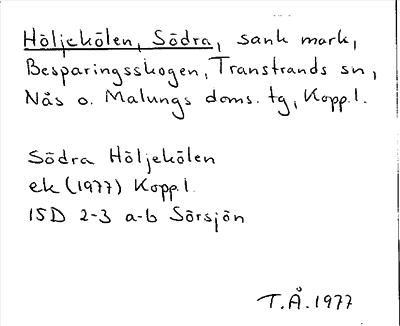 Höljekölen, Södra, sank mark,
Besparingsskogen, Transtrands sn,
Nås o. Malungs doms. tg, Kopp.l.
Södra Höljekölen
ek (1977) Kopp.l.
15D 2-3 a-b Sörsjön
T.Å. 1977